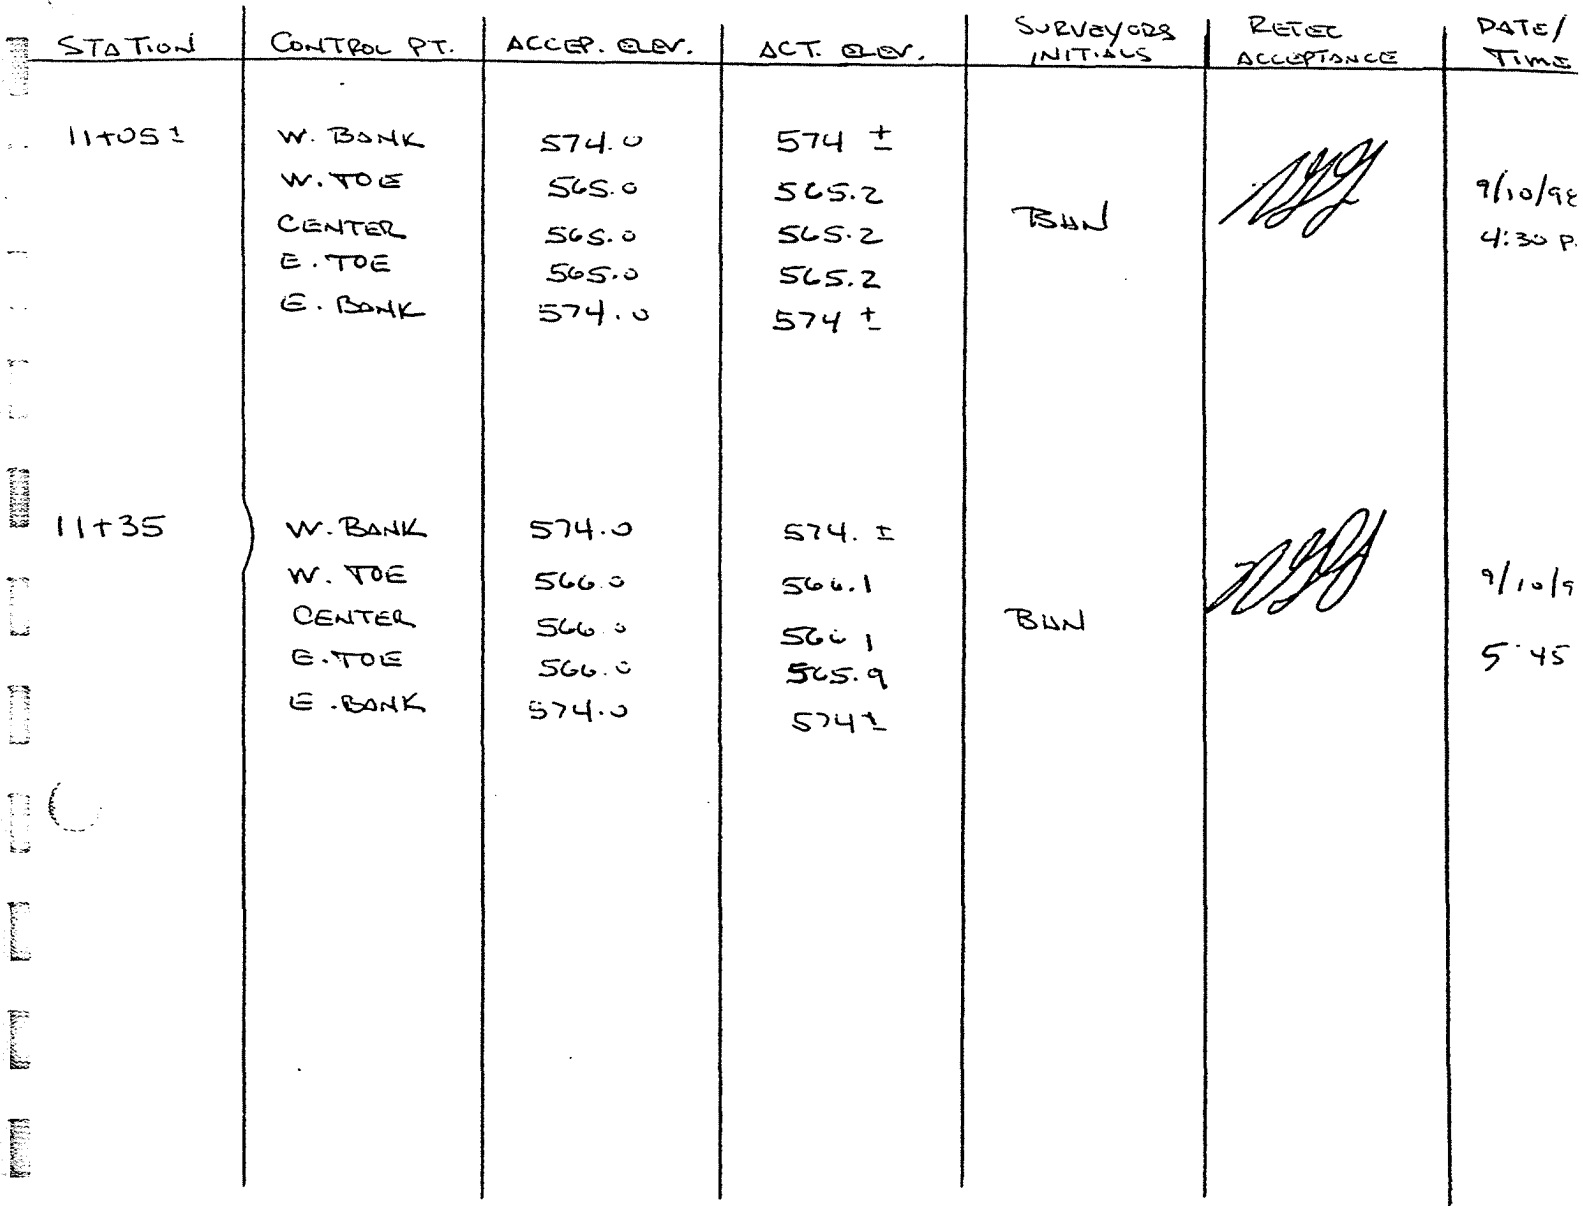 STATION CONTROL PT. ACCEP. ELEV. ACT. ELEV. SURVEYORS INITIALS RETEC ACCEPTANCE DATE/ TIME
11+05 ± W. BANK 574.0 574 ±
W. TOE 565.0 565.2 9/10/98
CENTER 565.0 565.2 BHN 4:30 P.
E. TOE 565.0 565.2
E. BANK 574.0 574 ±
11+35 W. BANK 574.0 574. ±
W. TOE 566.0 566.1 9/10/9
CENTER 566.0 566.1 BHN
E. TOE 566.0 565.9 5:45
E. BANK 574.0 574 ±